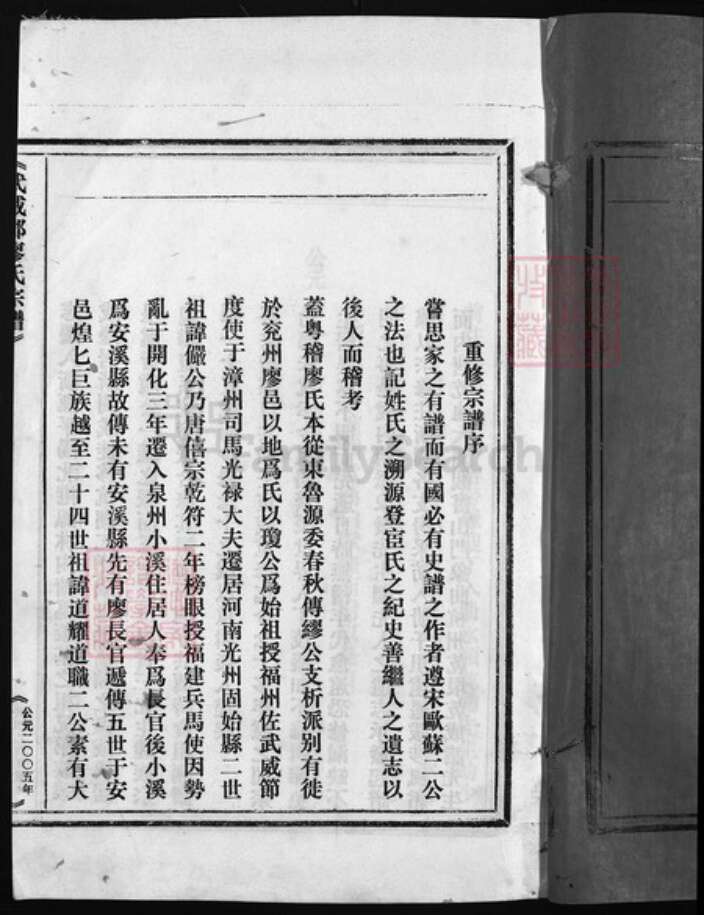 重修宗譜序
嘗思家之有譜而有國必有史譜之作者遵宋歐蘇二公
之法也記姓氏之溯源登宦氏之紀史善繼人之遺志以
後人而稽考
蓋粤稽廖氏本從東魯源委春秋傳繆公支析派别有徙
於兖州廖邑以地爲氏以瓊公爲始祖授福州佐武威節
度使于漳州司馬光禄大夫遷居河南光州固始縣二世
祖諱儼公乃唐僖宗乾符二年榜眼授福建兵馬使因勢
亂于開化三年遷入泉州小溪住居人奉爲長官後小溪
爲安溪縣故傳未有安溪縣先有廖長官遞傳五世于安
邑煌匕巨族越至二十四世祖諱道耀道職二公素有大
《武威郡廖氏宗譜》
《公元二〇〇五年》
FamilySearch